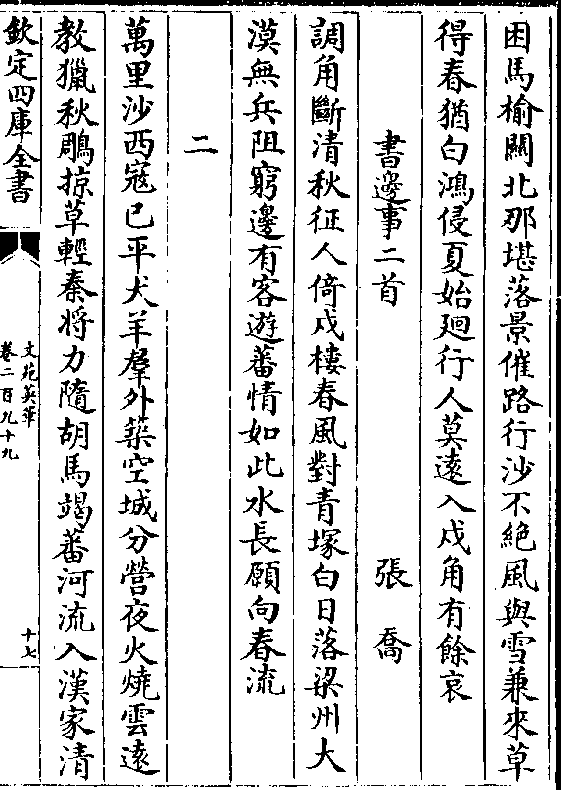 困馬榆關北那堪落景催路行沙不絕風與雪兼來草
得春猶白鴻侵夏始廻行人莫遠入戍角有餘哀
書邊事二首 張喬
調角斷清秋征人倚戍樓春風對青塚白日落梁州大
漠無兵阻窮邊有客遊蕃情如此水長願向春流
二
萬里沙西寇已平犬羊羣外築空城分營夜火燒雲遠
教獵秋鵰掠草輕秦將力隨胡馬竭蕃河流入漢家清
欽定四庫全書
文苑英華
卷二百九十九
十七